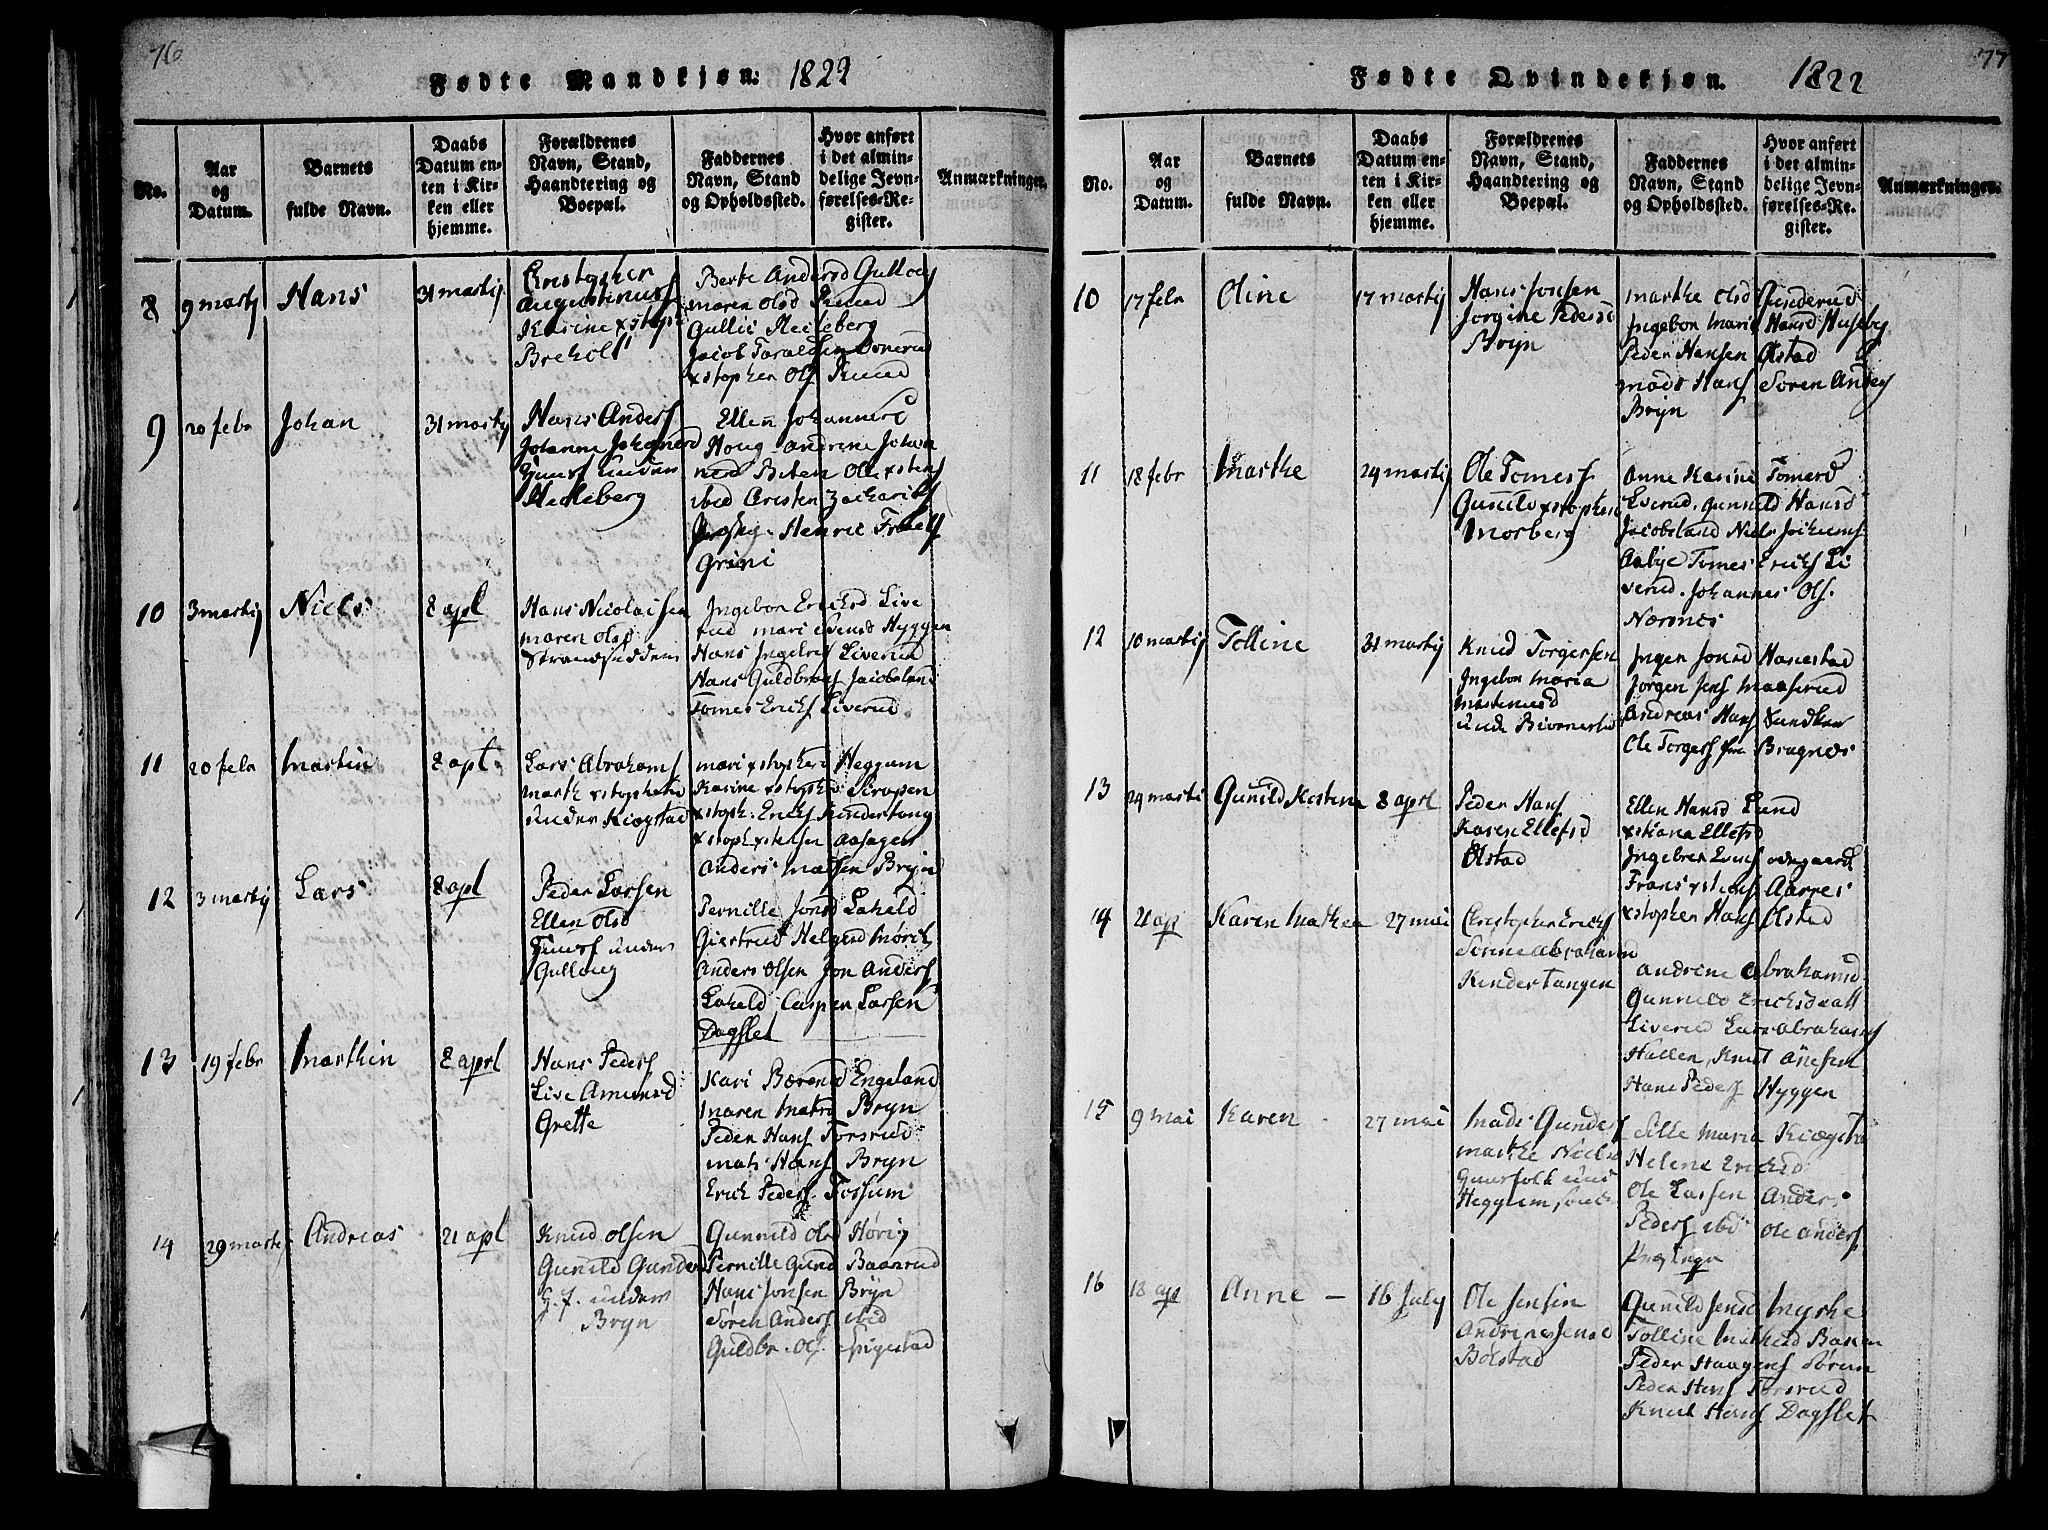 76
Fødte Mandkjøn: 1822
No.
Aar og Datum.
Barnets fulde Navn.
Daabs Datum enten i Kirken eller hjemme.
Forældrenes Navn, Stand, Haandtering og Boepæl.
Faddernes Navn, Stand og Opholdssted.
Hvor anført i det almindelige Jevnførelses-Register.
Anmærkninger.
8 9 martij Hans 31 martij
Christopher
Augustinuss
Karine xstoph
Breholt
Berte Andersd Gulloug
maren Olsd Knud
Gullic Hedeberg
Jacob Taralds
xstopher Ols Knud
9 20 febr Johan 31 martij
Hans Anders
Johanne Johannesd
Huusf under
Hedleberg
Ellen Johannesd
Houg Andrine Johan
ned Ole xstens
ibid Cristen Zacharias
Henric Frantz
Grini
10 3 martij Niels 8 apl
Hans Nicolaisen
maren Olsd
Strandsidden
Ingebor Ericksd Live
rud mari Svensd Hyggen
Hans Ingebrs Liverud
Hans Guldbrans Jacobsland
Tomes Ericks Liverud
11 20 febr Martin 8 apl
Lars Abrahams
marth xstophersd
under Kiøgstad
mari xstophersd Heggum
Karine xstophersd
xstoph. Ericks Kindertang
xstoph xstensen Aasagen
Anders Madsen Bryn
12 3 martij Lars 8 apl
Peder Larsen
Ellen Olsd
Huusf under
Gulloug
Pernille Jonsd Laheld
Giertrud Helgesd Mørch
Anders Olsen Jon Anders
Laheld Casper Larsen
Dagslet
13 19 febr Marthin 8 aprl
Hans Peders
Live Amunsd
Grette
Kari Bærensd Engeland
maren Matsd Bryn
Peder Hans Torsrud
mats Hans Bryn
Erick Peders. Fossum
14 29 marts Andreas 21 apl
Knud Olsen
Gunild Gunders
H. f. under
Bryn
Gunnild Ols Høvig
Pernille Gund Baanrud
Hans Jonsen Bryn
Søren Anders ibid
Guldbr. Ols. Spigestad
77
Fødte Qvindekjøn. 1822
No.
Aar og Datum.
Barnets fulde Navn.
Daabs Datum enten i Kirken eller hjemme.
Forældrenes Navn, Stand, Haandtering og Boepæl.
Faddernes Navn, Stand og Opholdssted.
Hvor anført i det almindelige Jevnførelses-Register.
Anmærkninger.
10 17 febr Oline 17 martij
Hans Jonsen
Jorgine Pedersd
Bryn
marthe Olsd Gunderud
Ingebor Marie Hansd Huseby
Peder Hansen Ølstad
mads Hans Søren Anders
Bryn
11 18 febr Marthe 24 martij
Ole Tomess
Gunild xstophersd
Morberg
Anne Karine Tomesd
Liverud, gunnild Hansd
Jacobsland Niels Jochums
Aabye Tomes Ericks Li
verud. Johannes Ols.
Nærsnes
12 10 martij Tolline 31 martij
Knud Torgersen
Ingebor Maria
Mortensd
unde Biørnerstad
Inger Jonsd Hanestad
Jørgen Jens Maaserud
Andreas Hans
Ole Torgers fra Bragnæs
13 24 marti Gunild Kistine 8 aprl
Peder Hans
Karen Ellefsd
Ølstad
Ellen Hansd Lund
xstiana Ellefsd
Ingebret Evens
Frans xstens Aarres
xstopher Hans Ølstad
14 2 ap Karen Mathea 27 mai
Christopher Ericks
Serine Abrahamsd
Kindertangen
Andrine Abrahamsd
Gunnild Ericksdatt
Liverud Lars Abrahams
Hallen, Knut Anesen
Hans Peders Hyggen
15 9 mai Karen - 27 mai
Mads Gunders
marthe Nielsd
Huusfolk und
Hegglem
Sille Maria Kiøgstad
Helene Ericksd
Ole Larsen Anders
Peders ibd Ole Anders
16 18 ap Anne — 16 July
Ole Jensen
Andrine Jensd
Bolstad
Gunild Jensd Myhre
Tolline
Peder Haagens Sørum
Peder Hans Torsrud
Knud Hans Dagslet